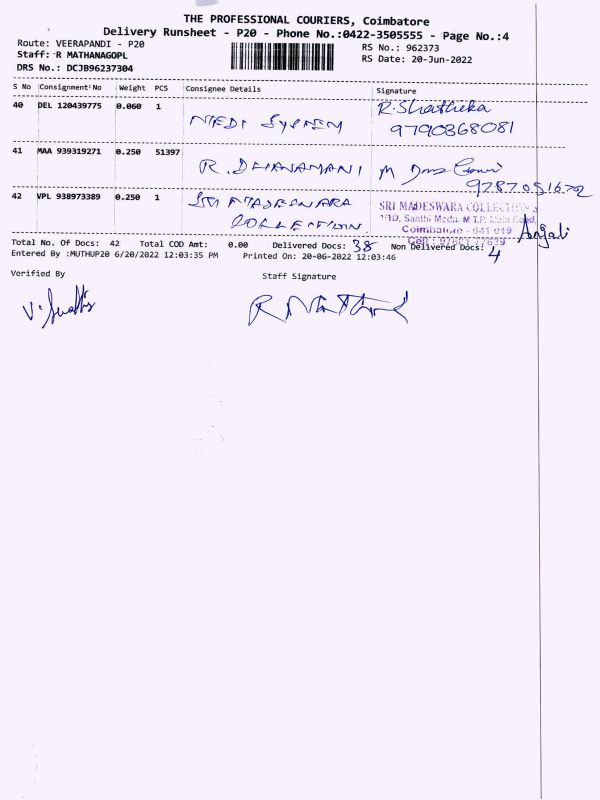 THE PROFESSIONAL COURIERS, Coimbatore
Delivery Runsheet - P20 - Phone No.:0422-3505555 - Page No.:4
Route: VEERAPANDI - P20
Staff: R MATHANAGOPL
DRS No.: DCJB96237304
RS No.: 962373
RS Date: 20-Jun-2022
S No Consignment No Weight PCS Consignee Details Signature
40 DEL 120439775 0.060 1 R. Shathika
9790368081
41 MAA 939319271 0.250 51397 R. DHANAMANI M
9787051672
42 VPL 938973389 0.250 1 SRI MADESWARA
COLLECTION
SRI MADESWARA COLLECTIONS
1/1D, Santhi Medu, M.T.P. Main Road,
Coimbatore - 641 019
Cell : 97601 77639
Total No. Of Docs: 42 Total COD Amt: 0.00 Delivered Docs: 38 Non Delivered Docs: 4
Entered By :MUTHUP20 6/20/2022 12:03:35 PM Printed On: 20-06-2022 12:03:46
Verified By Staff Signature